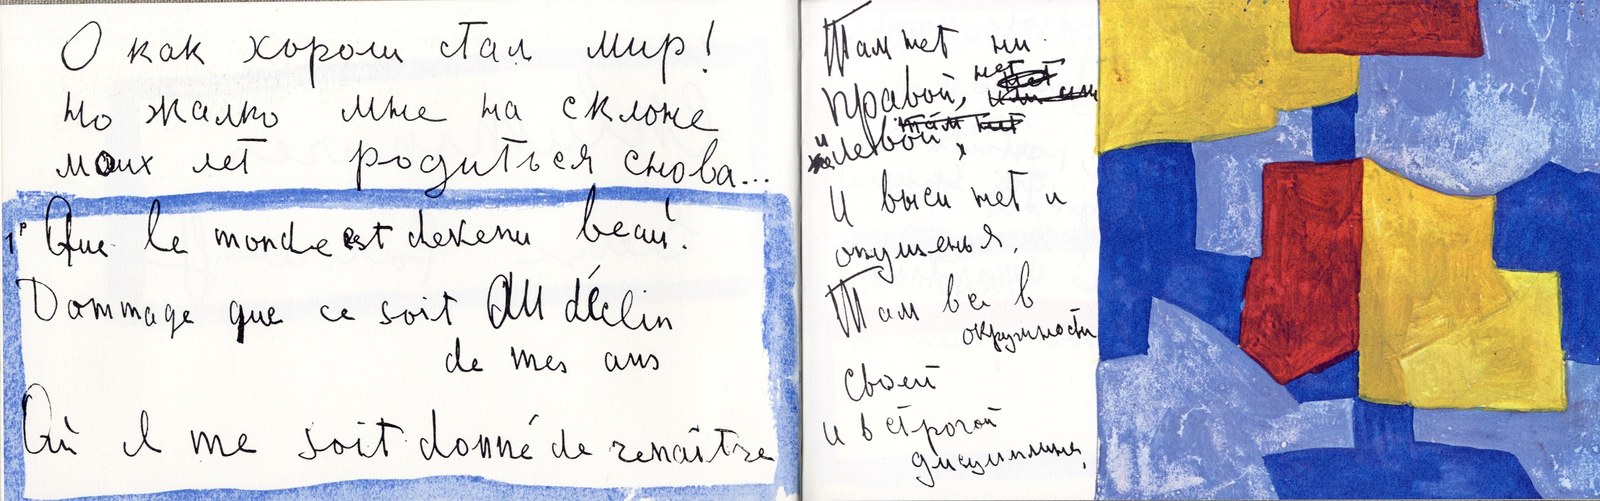 О как хорош стал мир!
но жалко мне на склоне
моих лет родиться снова...
1º Que le monde est devenu beau.
Dommage que ce soit au déclin
de mes ans
Où il me soit donné de renaître
Там нет ни
правой, нет
и левой
И выси нет и
опущенья,
Там все в
окружности
своей
и в строгой
дисциплине,